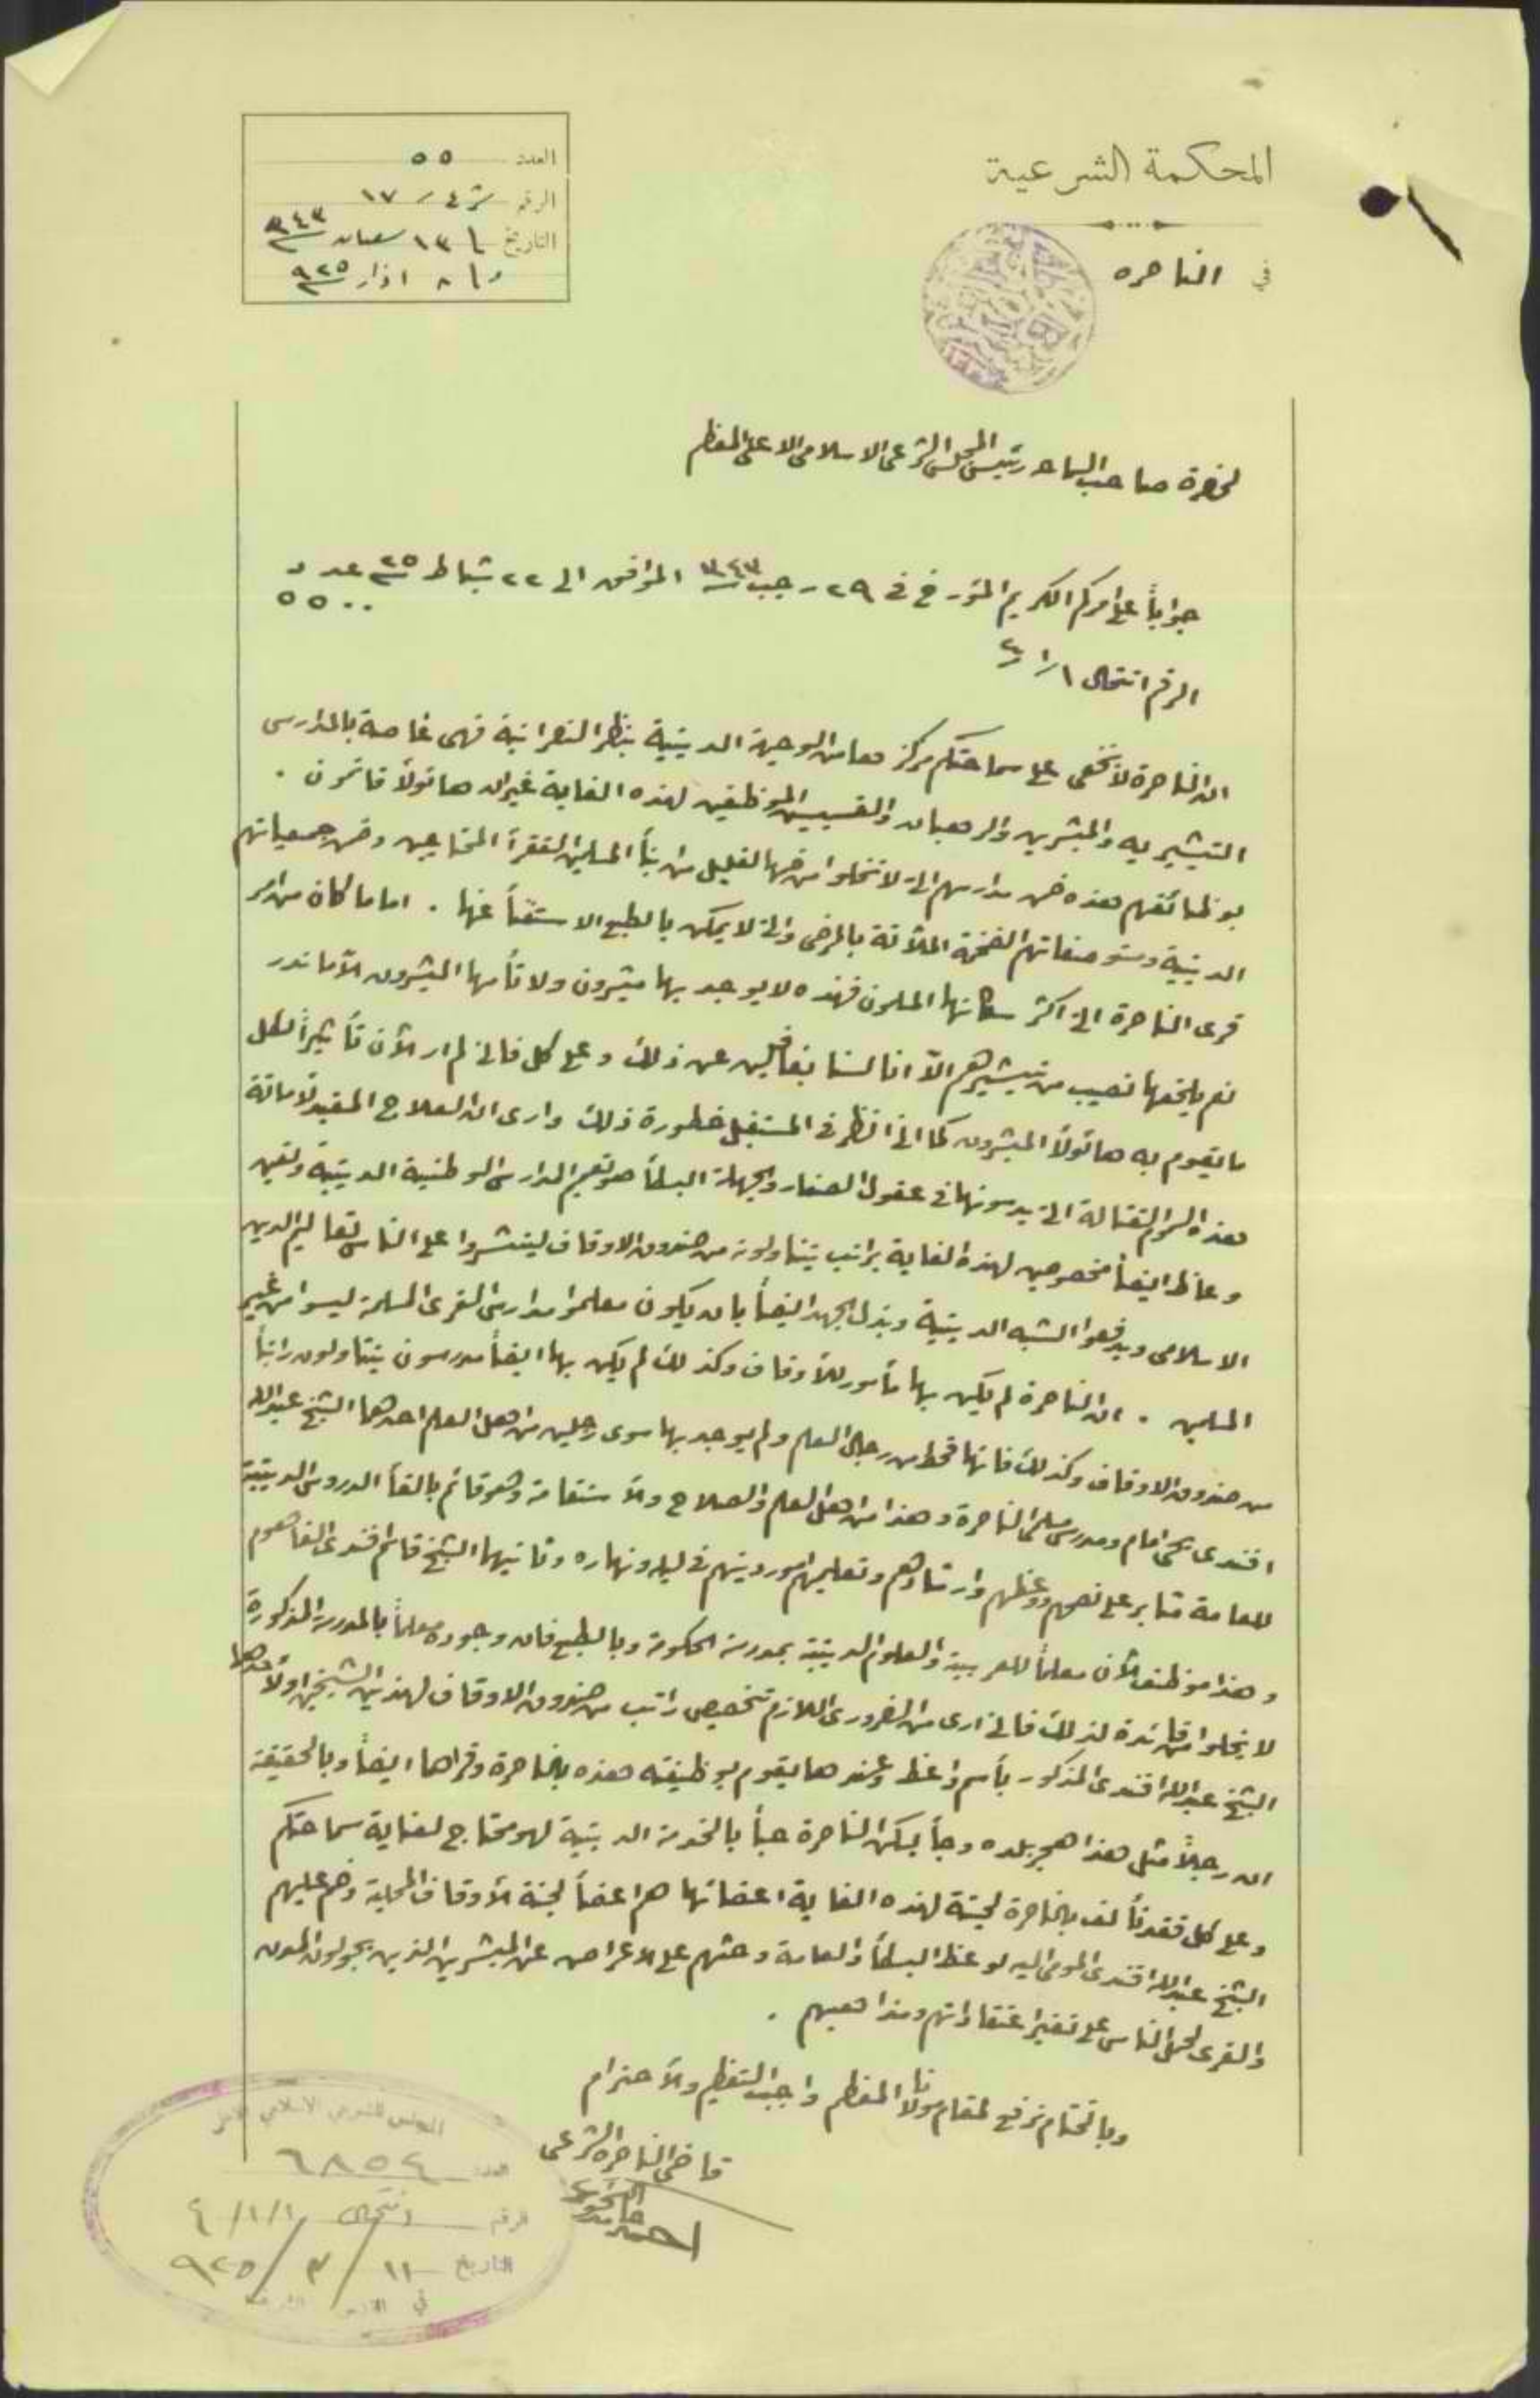 المحكمة الشرعية
في الناصره
العدد ٥٥
الرقم ش ٤ / ١٧
التاريخ ١٣ شعبان ٣٤٣
و ٨ اذار ٩٢٥
لحضرة صاحب السماحة رئيس المجلس الشرعى الاسلامى الاعلى المعظم
جواباً على امركم الكريم المؤرخ فى ٢٩ رجب ٣٤٣ الموافق الى ٢٢ شباط ٢٥ عدد
٥٥٠٠
الرقم انتحال ١/١
ان الناصرة لا تخفى على سماحتكم مركز هام من الوجهة الدينية بنظر النصرانية فهى غاصة بالمدارس
التبشيريه والمبشرين والرهبان والقسيسين الموظفين لهذه الغاية غير ان هاتولاً قائمون
بوظائفهم هذه ضمن مدارسهم التى لا تخلوا من ضمها لقليل من ابنأ المسلمين الفقرأ المحتاجين وضمن جمعياتهم
الدينية ومستوصفاتهم الضخمة الملآنة بالمرضى والتى لا يمكن بالطبع الاستغنأ عنها . اما ما كان من امر
قرى الناصرة التى اكثر سكانها المسلمون فهذه لا يوجد بها مبشرون ولا تأمها المبشرون الا ما ندر
نعم يلحقها نصيب من تبشيرهم الا اننا لسنا بغافلين عن ذلك وعلى كل فانى لم ار الآن تأثيراً لكل
ما يقوم به هاتولاً المبشرون كما انى انظر فى المستقبل خطورة ذلك وارى ان العلاج المفيد لاماتة
هذه السموم القتالة التى يدسونها فى عقول الصغار والجهلة البسطأ هو تعميم المدارس الوطنية الدينية وتعين
وعاظ ايضاً مخصوصين لهذه الغاية براتب يتناولونه من صندوق الاوقاف لينشروا على الناس تعاليم الدين
الاسلامى ويدفعوا الشبه الدينية وبذل الجهد ايضاً بان يكون معلموا مدارس القرى المسلمة ليسوا من غير
المسلمين . ان الناصرة لم يكن بها مأمور للأوقاف وكذلك لم يكن بها ايضاً مدرسون يتناولون راتباً
من صندوق الاوقاف وكذلك فانها قحط من رجال العلم ولم يوجد بها سوى رجلين من اهل العلم احدهما الشيخ عبد الله
افندى يحيى امام ومدرس الناصرة وهذا من اهل العلم والصلاح والاستقامة وهو قائم بالقأ الدروس الدينية
للعامة مثابر على نصحهم ووعظهم وارشادهم وتعليمهم امور دينهم فى ليله ونهاره وثانيهما الشيخ قاسم افندى الفاهوم
وهذا موظف الآن معلماً للعربية والعلوم الدينية بمدرسة الحكومة وبالطبع فان وجوده معلماً بالمدرسة المذكورة
لا يخلوا من فائدة لذلك فانى ارى من الضرورى اللازم تخصيص راتب من صندوق الاوقاف لهذين الشيخين اولاً احدهما
الشيخ عبد الله افندى المذكور بأسم واعظ وعندها يقوم بوظيفته هذه بالناصرة وقراها ايضاً وبالحقيقة
ان رجلاً مثل هذا هجر بلده وجأ ليسكن الناصرة حباً بالخدمة الدينية لهو محتاج لعناية سماحتكم
وعلى كل فقد تألف بالناصرة لجنة لهذه الغاية اعضائها هم اعضأ لجنة الأوقاف المحلية وضم عليهم
الشيخ عبد الله افندى المومى اليه لوعظ البسطأ والعامة وحثهم على الاعراض عن المبشرين الذين يجولون المدن
والقرى لحمل الناس على تغيير اعتقاداتهم ومذاهبهم .
وبالختام نرفع لمقام مولانا المعظم واجب التعظيم والاحترام
قاضى الناصره الشرعى
المجلس الشرعي الاسلامي الاعلى
العدد ٦٨٥٤
الرقم انتحال ٤/١/١
التاريخ ١١ / ٣ / ٩٢٥